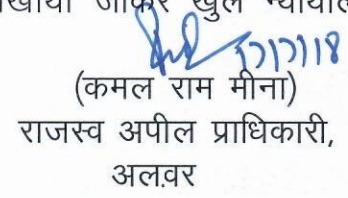 जाकर खुले
17/7/18
(कमल राम मीना)
राजस्व अपील प्राधिकारी,
अलवर